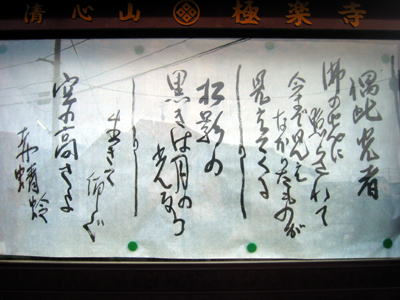 清心山 極楽寺
偶比 光者
佛の光に
照らされて
今まで見え
なかったものが
見えてくる
松影の
黒きは月の
光なり
生きて仰ぐ
空の高さよ
赤蜻蛉